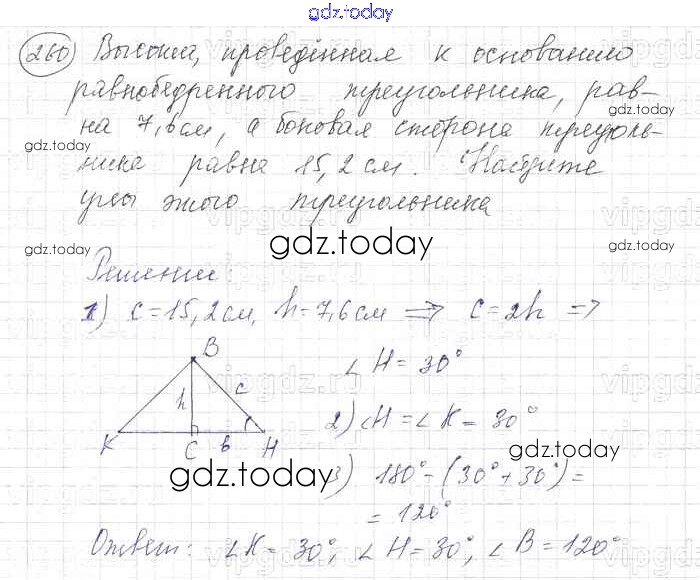 gdz.today
260) Высота, проведённая к основанию
равнобедренного треугольника, рав-
на 7,6 см, а боковая сторона треуголь-
ника равна 15,2 см. Найдите
углы этого треугольника
gdz.today
gdz.today
gdz.today
Решение:
1) c = 15,2 см, h = 7,6 см ⇒ c = 2h ⇒
∠H = 30°
2) ∠H = ∠K = 30°
3) 180° - (30° + 30°) =
= 120°
B
h
c
K
C
b
H
gdz.today
gdz.today
Ответ: ∠K = 30°, ∠H = 30°, ∠B = 120°
gdz.today